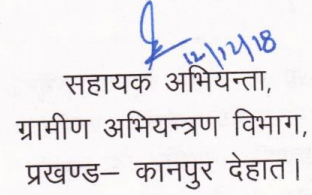 12/12/18
सहायक अभियन्ता,
ग्रामीण अभियन्त्रण विभाग,
प्रखण्ड– कानपुर देहात।